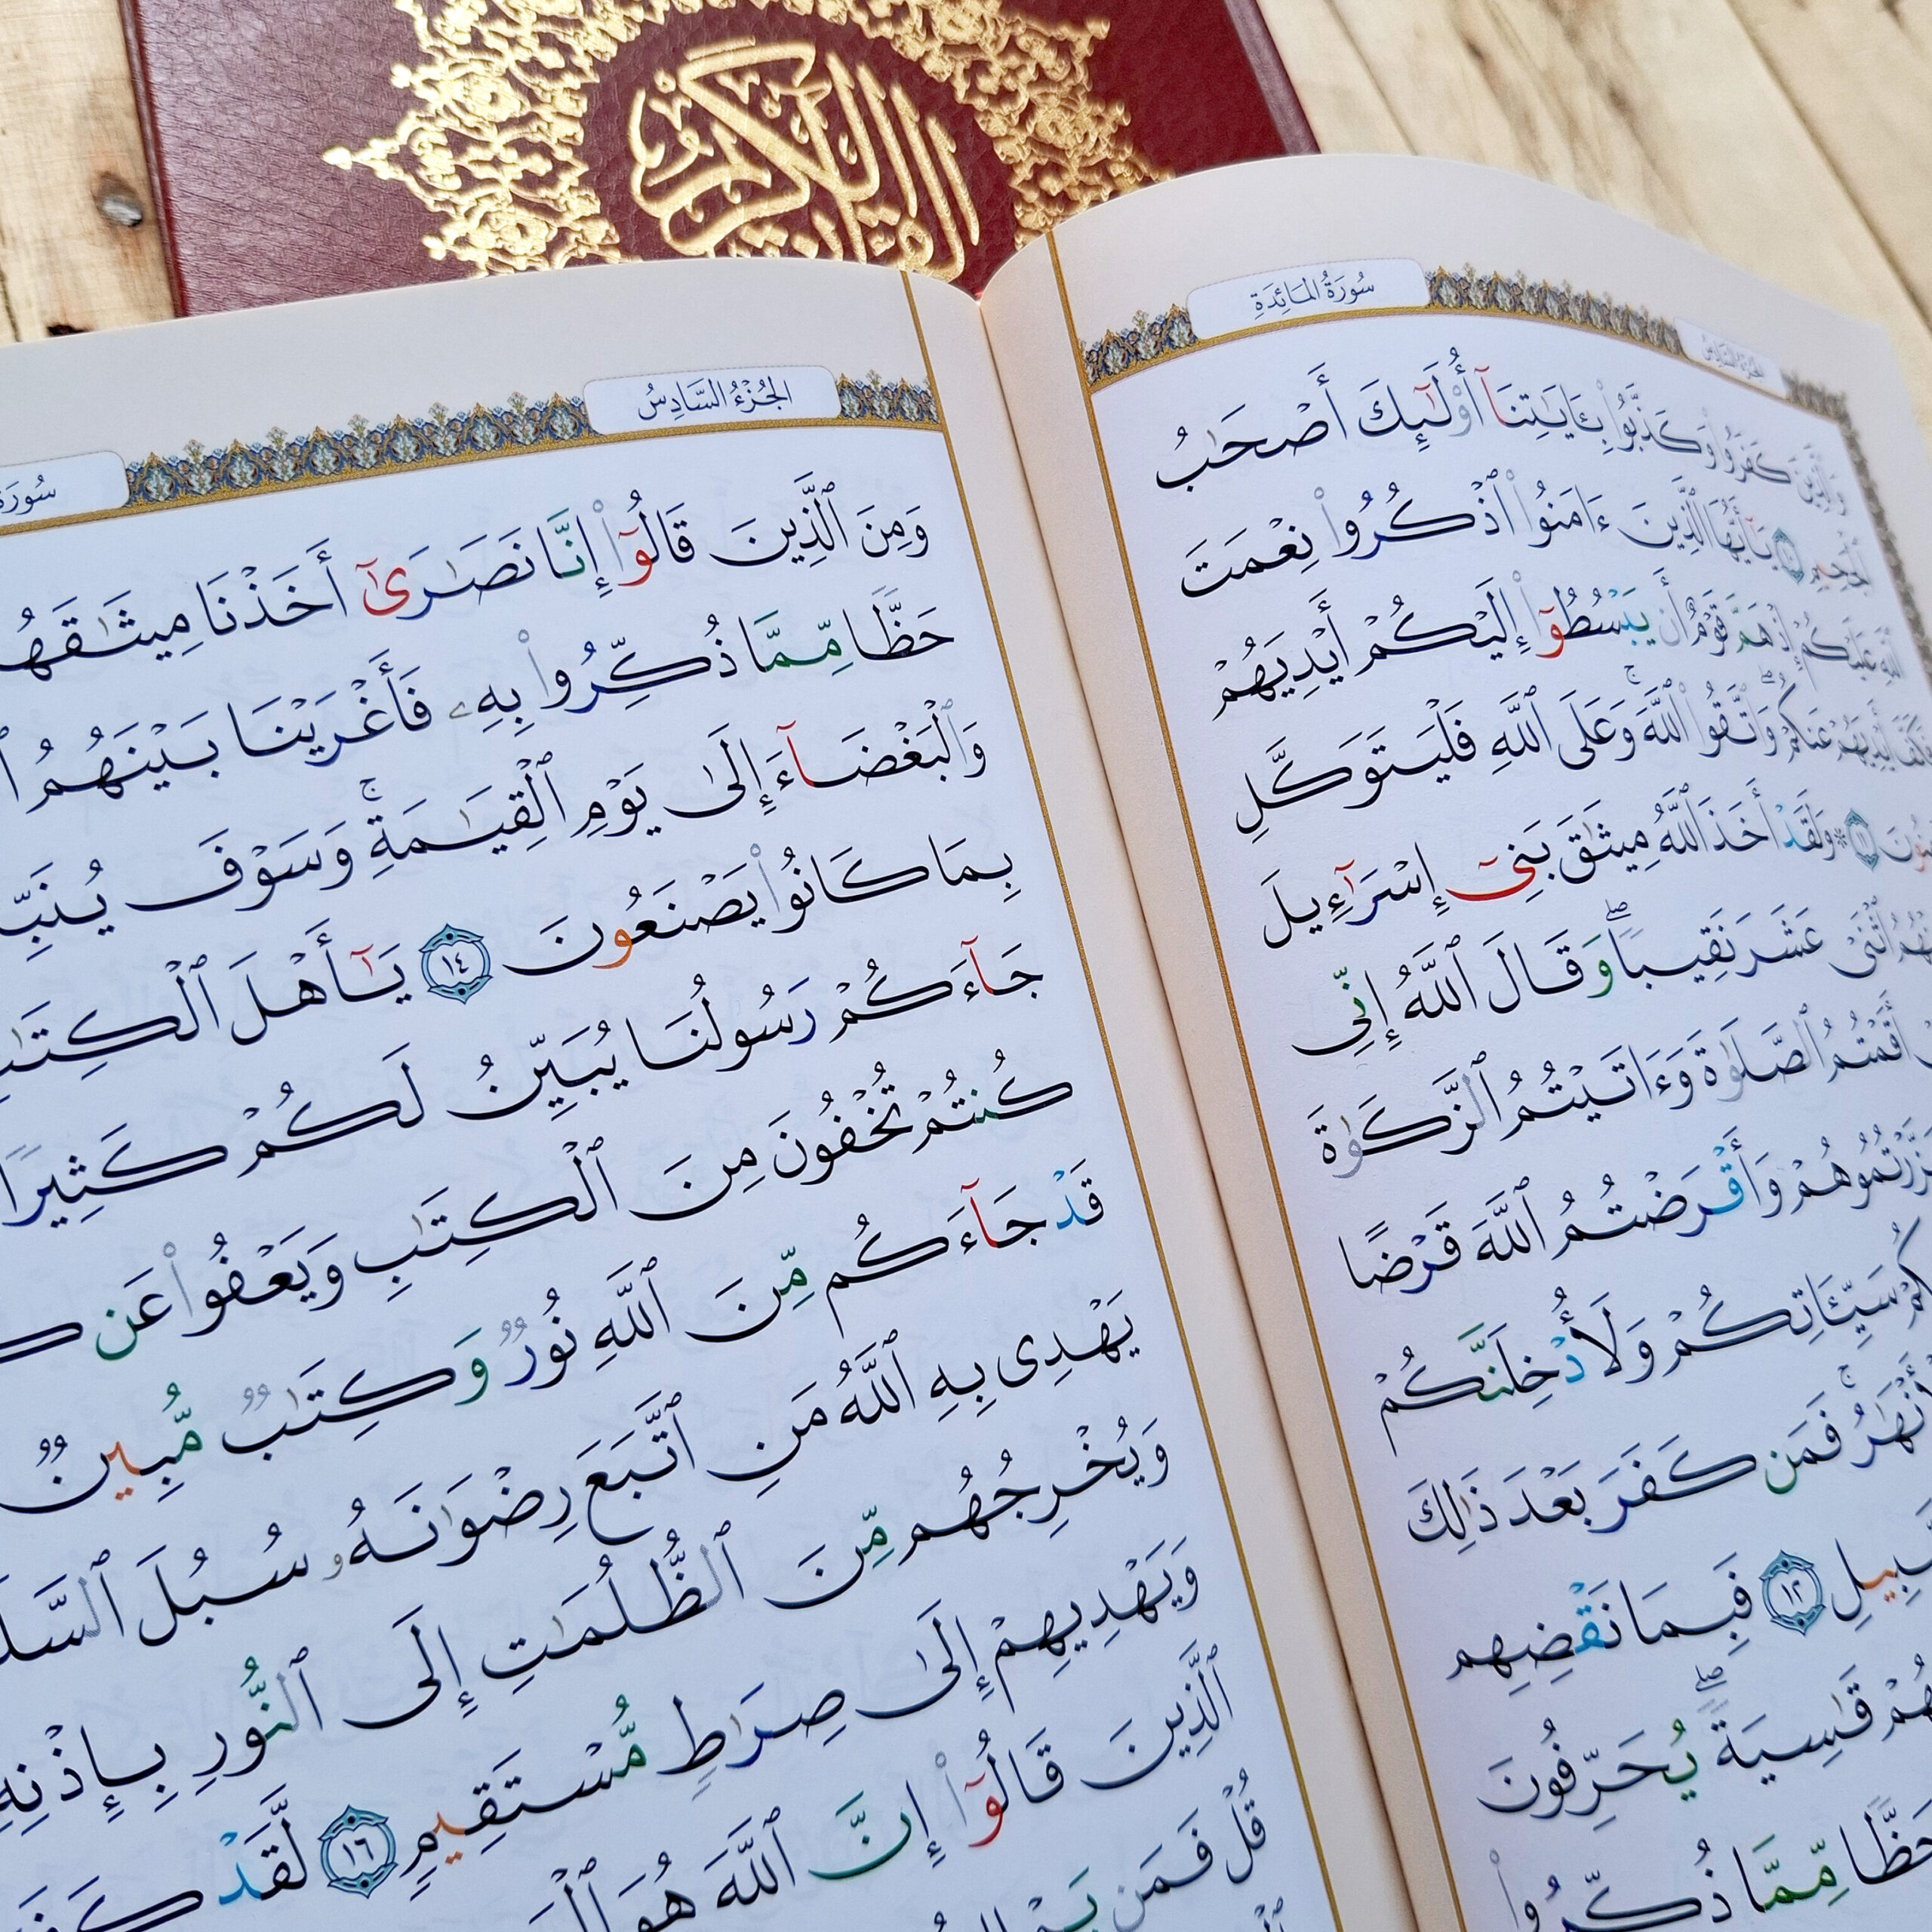 القرآن الكريم
سُورَةُ المَائِدَةِ
وَٱلَّذِينَ كَفَرُوا۟ وَكَذَّبُوا۟ بِـَٔايَـٰتِنَآ أُو۟لَـٰٓئِكَ أَصْحَـٰبُ
ٱلْجَحِيمِ ١٠ يَـٰٓأَيُّهَا ٱلَّذِينَ ءَامَنُوا۟ ٱذْكُرُوا۟ نِعْمَتَ
ٱللَّهِ عَلَيْكُمْ إِذْ هَمَّ قَوْمٌ أَن يَبْسُطُوٓا۟ إِلَيْكُمْ أَيْدِيَهُمْ
فَكَفَّ أَيْدِيَهُمْ عَنكُمْ ۖ وَٱتَّقُوا۟ ٱللَّهَ ۚ وَعَلَى ٱللَّهِ فَلْيَتَوَكَّلِ
١١ ۞ وَلَقَدْ أَخَذَ ٱللَّهُ مِيثَـٰقَ بَنِىٓ إِسْرَٰٓءِيلَ
ٱثْنَىْ عَشَرَ نَقِيبًا ۖ وَقَالَ ٱللَّهُ إِنِّى
أَقَمْتُمُ ٱلصَّلَوٰةَ وَءَاتَيْتُمُ ٱلزَّكَوٰةَ
وَأَقْرَضْتُمُ ٱللَّهَ قَرْضًا
سَيِّـَٔاتِكُمْ وَلَأُدْخِلَنَّكُمْ
فَمَن كَفَرَ بَعْدَ ذَٰلِكَ
١٢ فَبِمَا نَقْضِهِم
قَـٰسِيَةً ۖ يُحَرِّفُونَ
حَظًّا مِّمَّا ذُكِّرُوا۟
الجُزْءُ السَّادِسُ
سُورَةُ
وَمِنَ ٱلَّذِينَ قَالُوٓا۟ إِنَّا نَصَـٰرَىٰٓ أَخَذْنَا مِيثَـٰقَهُ
حَظًّا مِّمَّا ذُكِّرُوا۟ بِهِۦ فَأَغْرَيْنَا بَيْنَهُمُ
وَٱلْبَغْضَآءَ إِلَىٰ يَوْمِ ٱلْقِيَـٰمَةِ ۚ وَسَوْفَ يُنَبِّ
بِمَا كَانُوا۟ يَصْنَعُونَ ١٤ يَـٰٓأَهْلَ ٱلْكِتَـٰ
جَآءَكُمْ رَسُولُنَا يُبَيِّنُ لَكُمْ كَثِيرًا
كُنتُمْ تُخْفُونَ مِنَ ٱلْكِتَـٰبِ وَيَعْفُوا۟ عَن كَ
قَدْ جَآءَكُم مِّنَ ٱللَّهِ نُورٌ وَكِتَـٰبٌ مُّبِينٌ
يَهْدِى بِهِ ٱللَّهُ مَنِ ٱتَّبَعَ رِضْوَٰنَهُۥ سُبُلَ ٱلسَّلَ
وَيُخْرِجُهُم مِّنَ ٱلظُّلُمَـٰتِ إِلَى ٱلنُّورِ بِإِذْنِهِ
وَيَهْدِيهِمْ إِلَىٰ صِرَٰطٍ مُّسْتَقِيمٍ ١٦ لَّقَدْ كَفَ
ٱلَّذِينَ قَالُوٓا۟ إِنَّ ٱللَّهَ هُوَ ٱلْ
قُلْ فَمَن